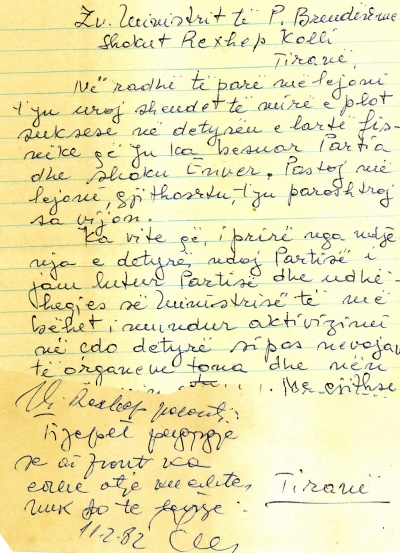 Zv. Ministrit të P. Brendëshme
Shokut Rexhep Kolli
Tiranë,
Në radhë të parë më lejoni
t'ju uroj shendet të mirë e plot
suksese në detyrën e lartë fis-
nike që Ju ka besuar Partia
dhe shoku Enver. Pastaj më
lejoni, gjithashtu, t'ju parashtroj
sa vijon.
Ka vite që, i prirë nga ndje
nja e detyrës ndaj Partisë i
jam lutur Partisë dhe udhë-
heqjes së Ministrisë të më
bëhet i mundur aktivizimi
në çdo detyrë sipas nevojave
të organeve tona dhe nën
Me gjithse
Rexhep
Tijepet përgjigje
se ai front ka
edhe atje
nuk do te
Tiranë
11.2.82